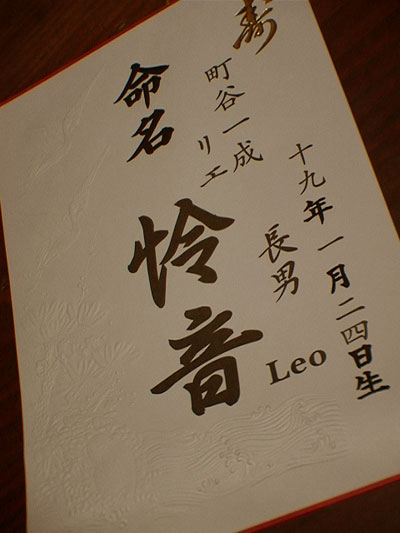 寿
十九年一月二四日生
町谷一成
リエ
長男
命名
怜音
Leo